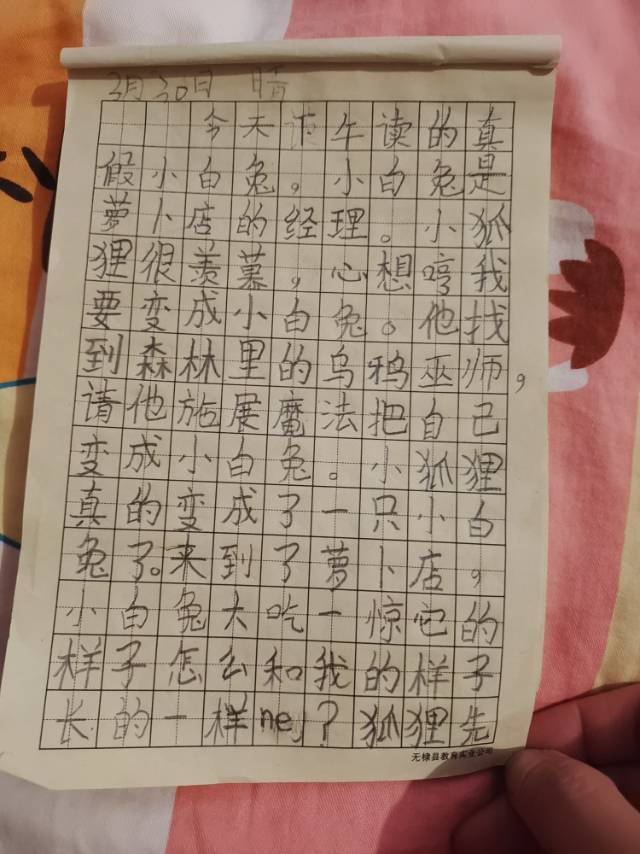 3月30日 晴
今天下午读的真
假小白兔。小白兔是
萝卜店的经理。小狐
狸很羡慕，心想哼我
要变成小白兔。他找
到森林里的乌鸦巫师，
请他施展魔法把自己
变成小白兔。小狐狸
真的变成了一只小白
兔了。来到了萝卜店，
小白兔大吃一惊它的
样子怎么和我的样子
长的一样ne？狐狸先
无棣县教育实业公司